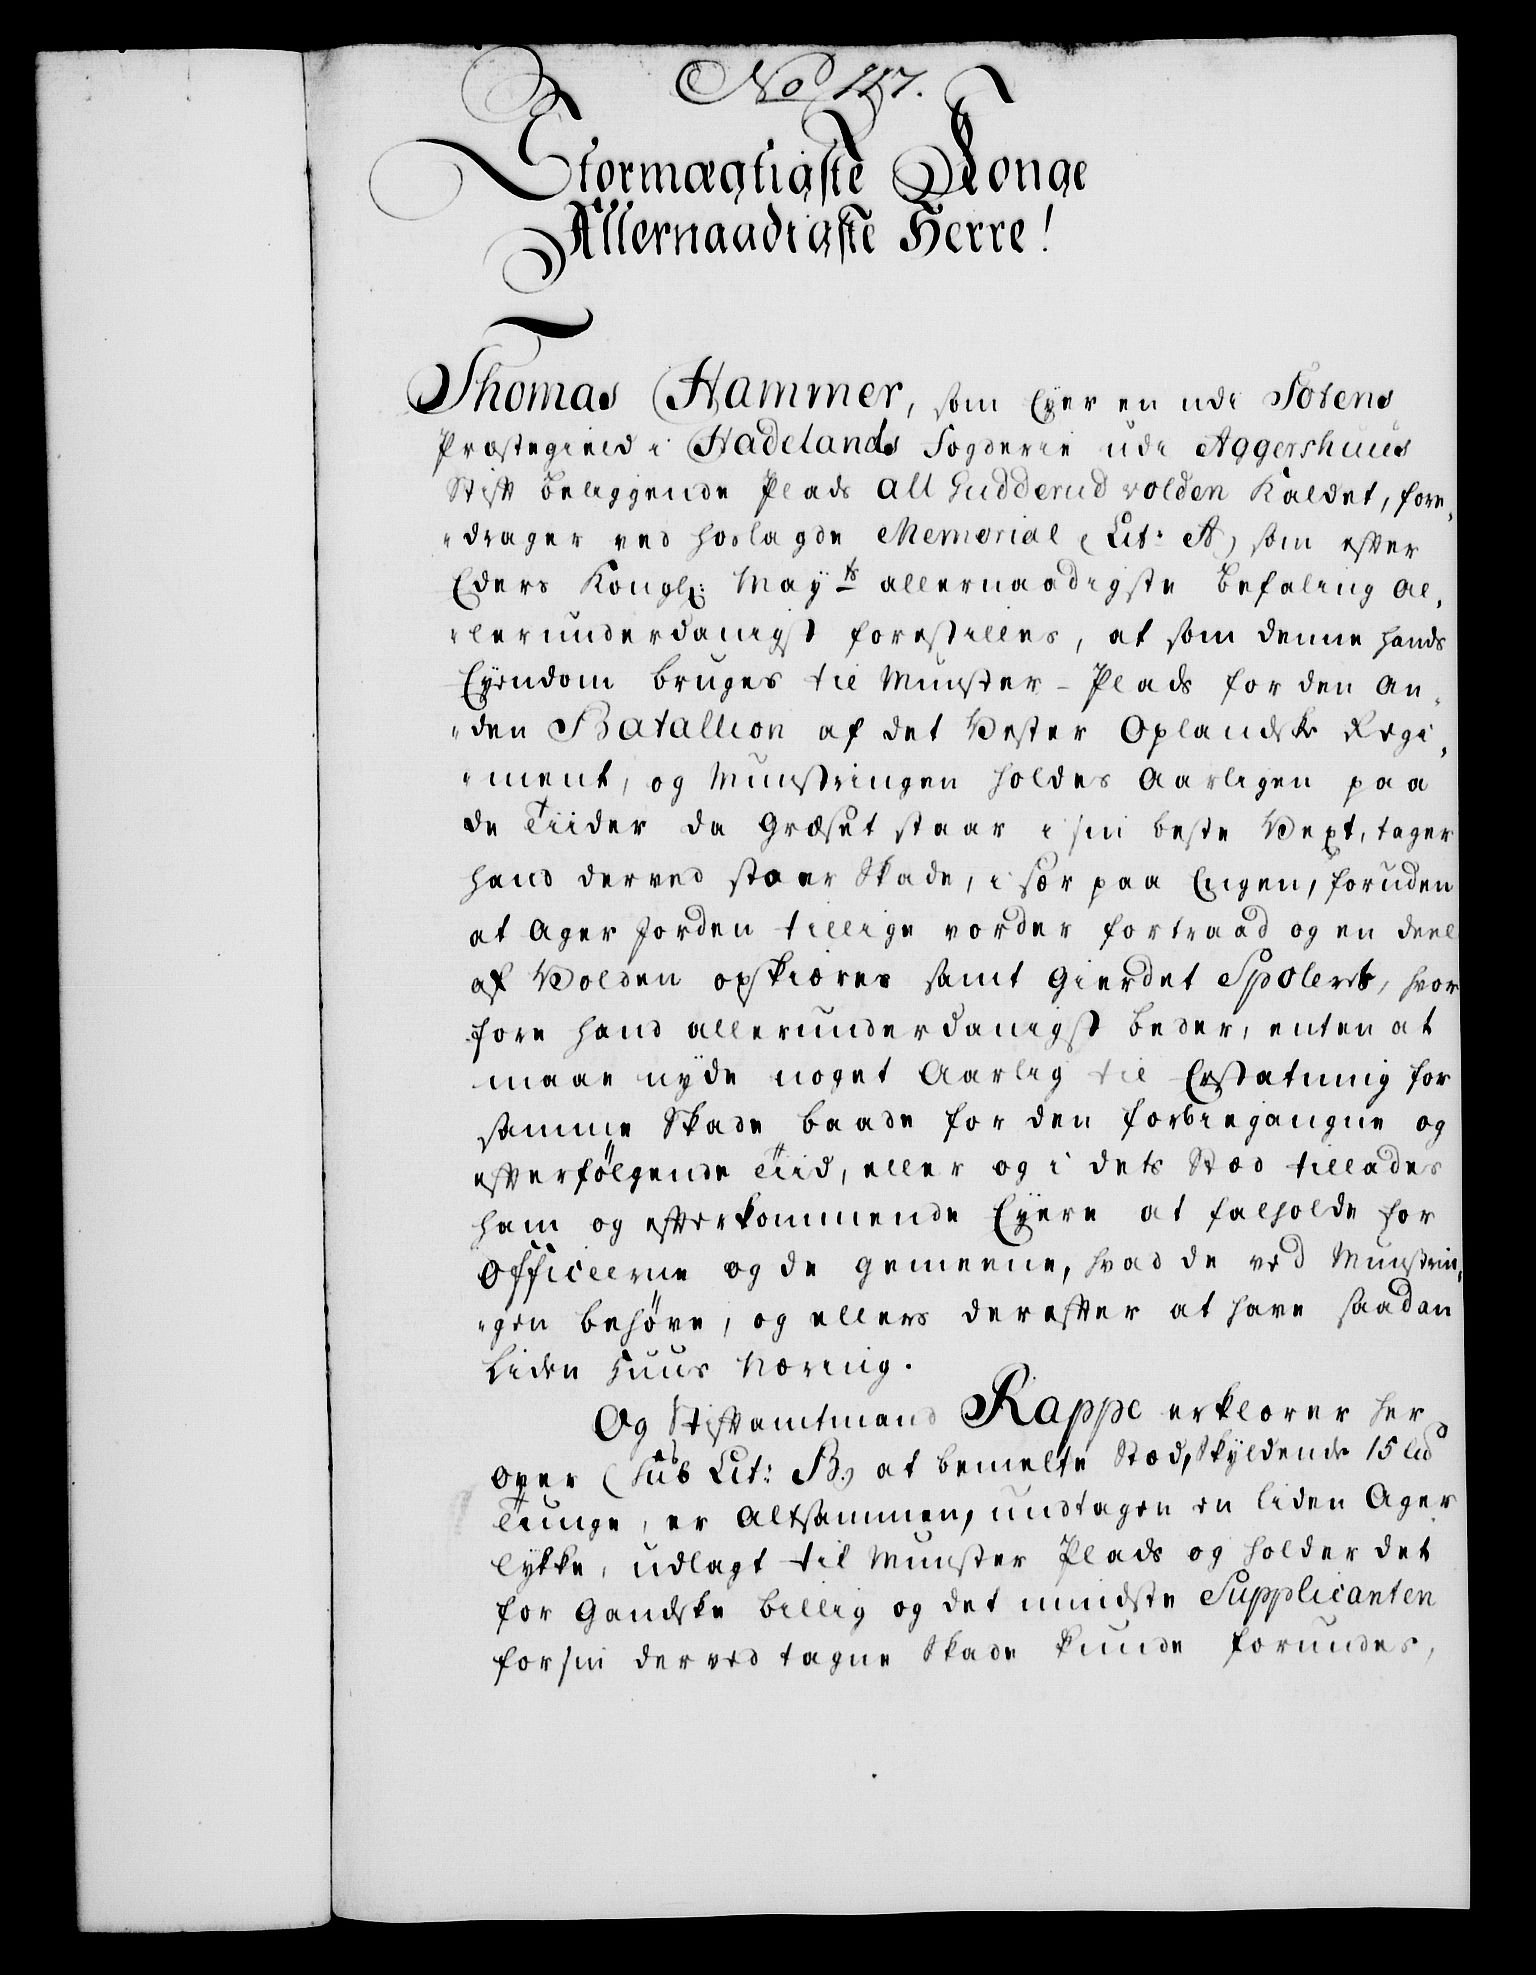 No 117.
Stormægtigste Konge
Allernaadigste Herre!
Thomas Hammer, som Eyer en udi Totens
Præstegield i Hadelands Fogderie udi Aggershuus
Stift beliggende Plads all Gudderud volden Kaldet, fore¸
¸drager ved hoslagde Memorial (Lit: A) som efter
Eders Kongl: Mayts allernaadigste befaling al¸
¸lerunderdanigst forestilles, at som denne hands
Eyendom bruges til Munster-Plads for den An¸
¸den Batallion af det Vester Oplandske Regi¸
¸ment, og Munstringen holdes Aarligen paa
de Tiider da Græset staar i sin beste Vext, tager
hand derved stoer Skade, i sær paa Engen, foruden
at Ager Jorden tillige vorder fortraad og en deel
af Volden opskiæres samt gierdet Spoleret, hvor
fore hand allerunderdanigst beder, enten at
maae nyde noget Aarlig til Erstatning for
samme Skade baade for den forbiegangne og
efterfölgende Tiid, eller og i dets Stæd tillades
ham og efterkommende Eyere at falholde for
Officeerne og de gemeene, hvad de ved Munstrin¸
¸gen behöve, og ellers derefter at have saadan
Liden Huus Næring.
Og Stiftamtmand Rappe erklærer her
over (sub Lit: B.) at bemelte Stæd, Skyldende 15 lid
Tunge, er Altsammen, undtagen en liden Ager
lykke, udlagt til Munster Plads og holder det
for Gandske billig og det mindste Supplicanten
for sin derved tagne Skade kunde forundes,